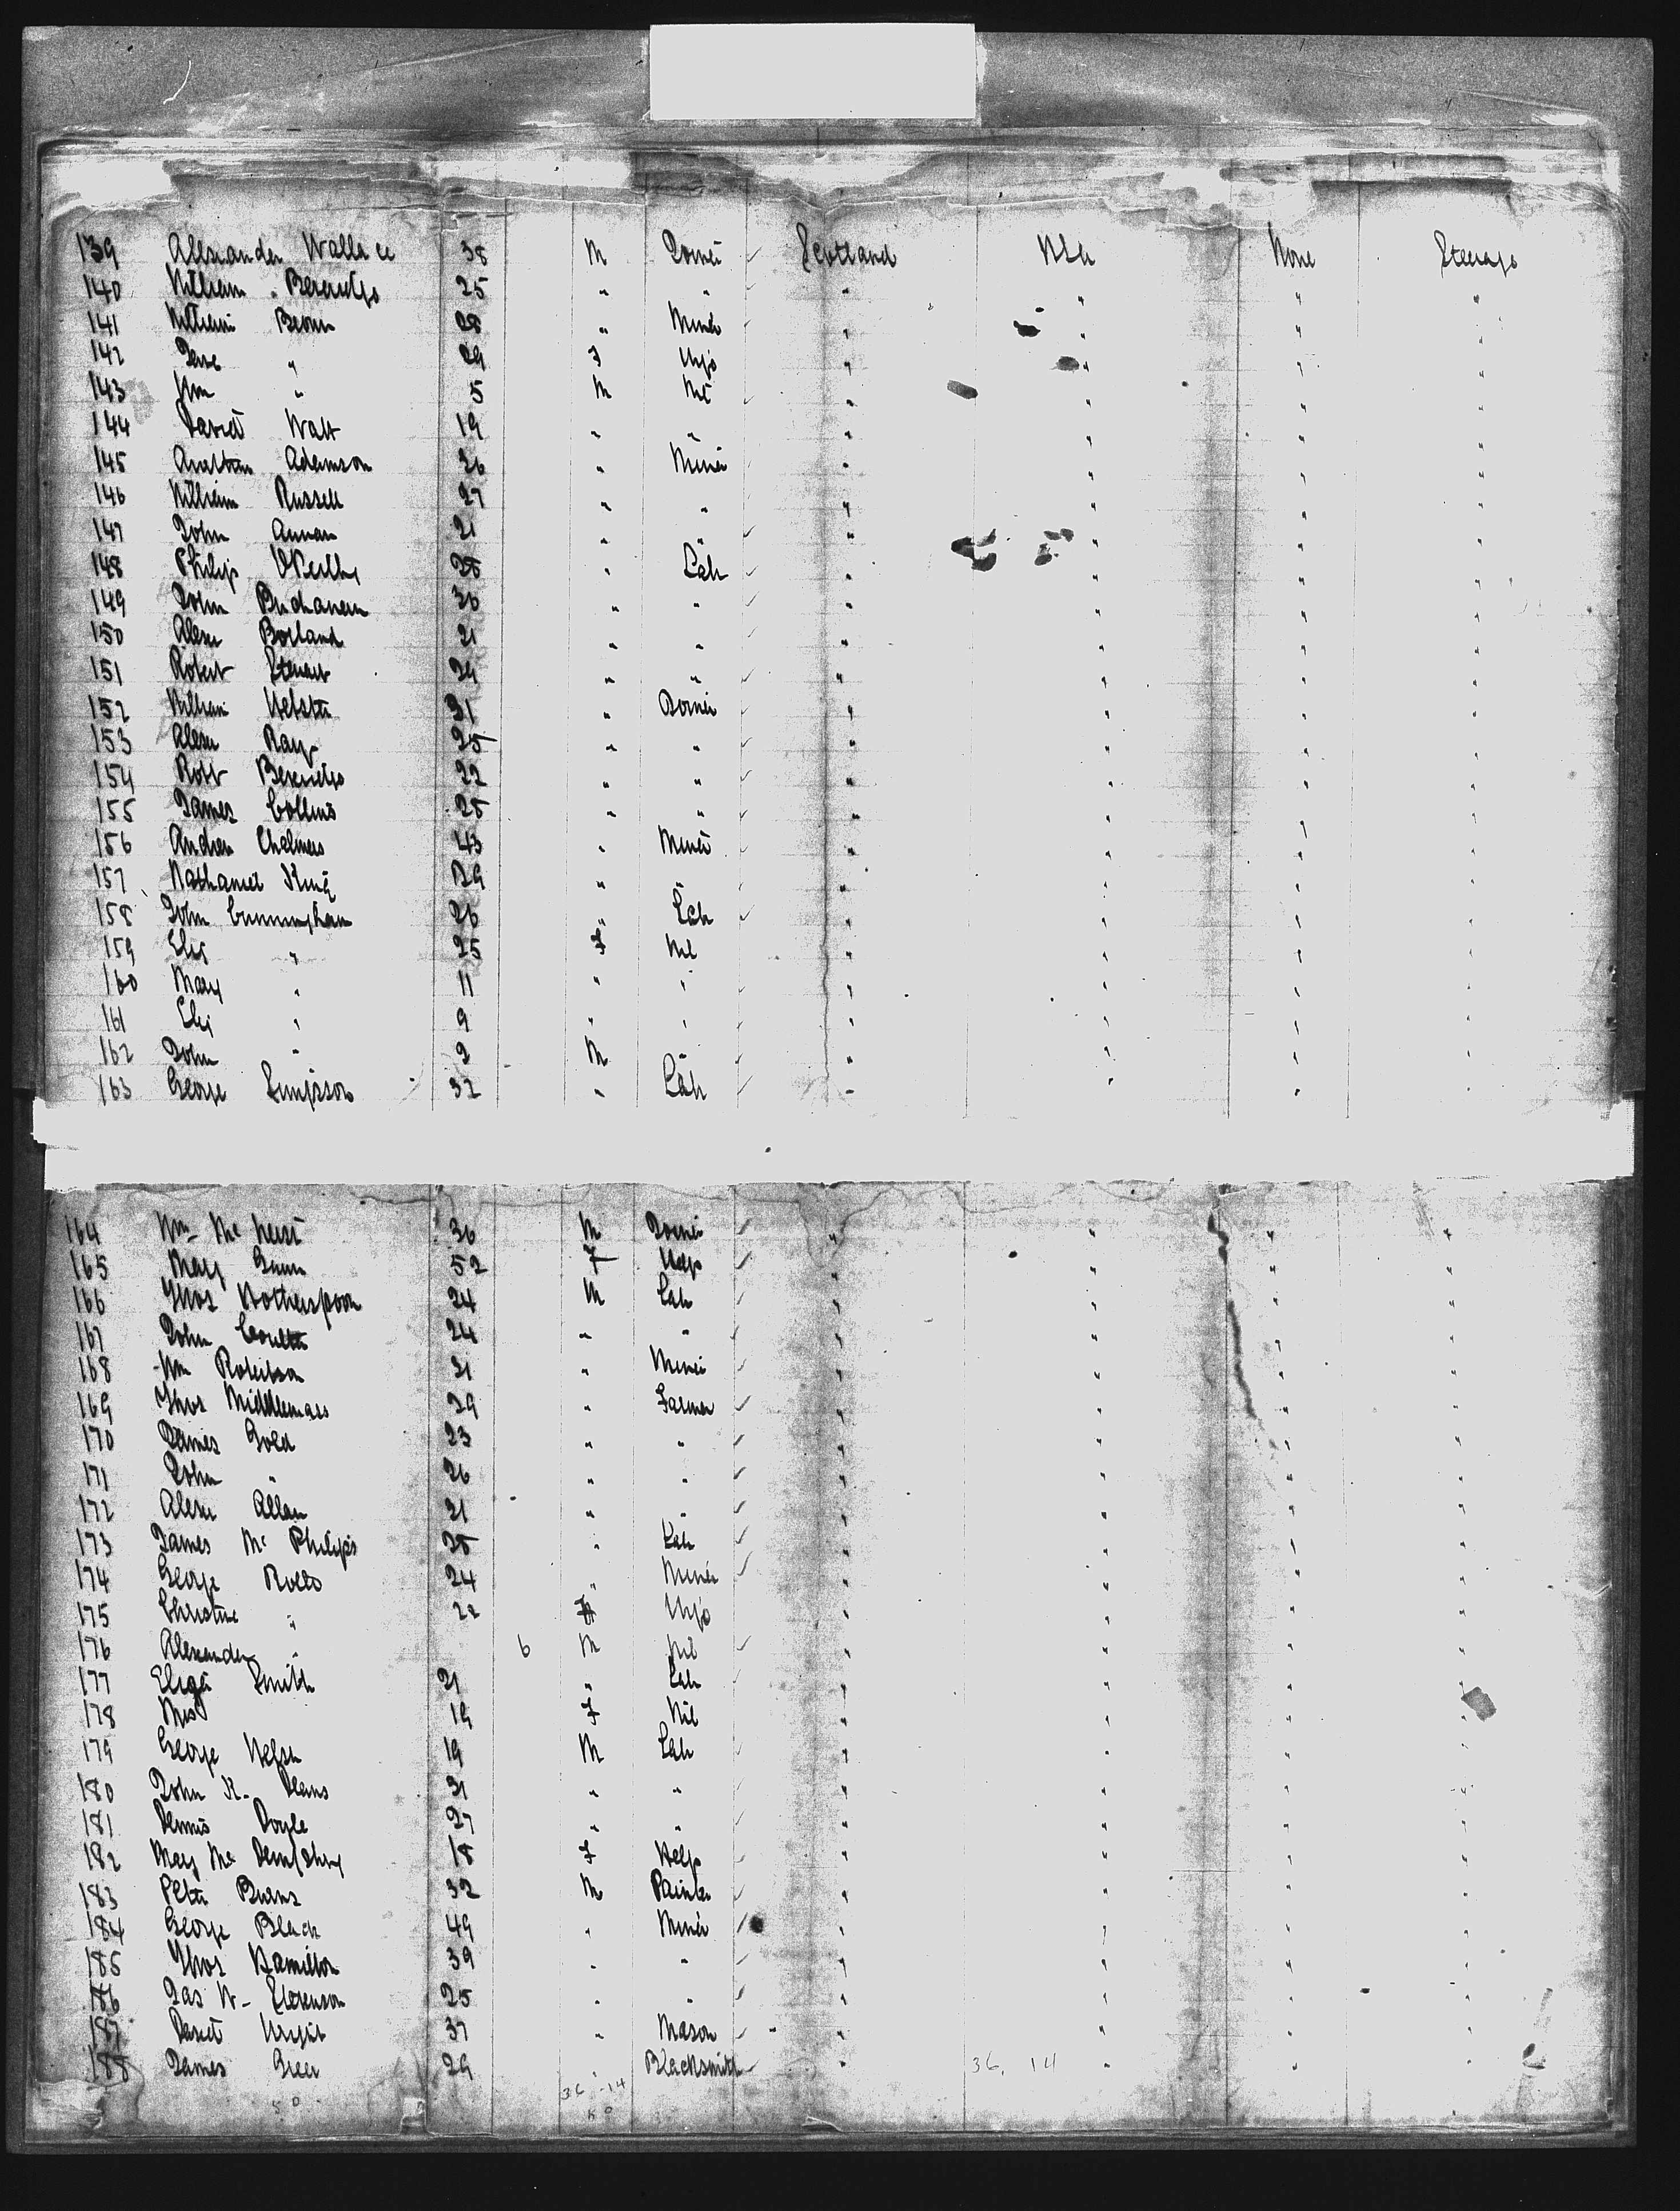 139 Alexander Wallace 38 M Joiner Scotland USA None Steerage
140 William Beveridge 25 " " " " " "
141 William Brown 28 " Miner " " " "
142 " 29 F Wife " " " "
143 Wm " 5 M Nil " " " "
144 David Watt 19 " " " " " "
145 Adamson 26 " Miner " " " "
146 William Russell 27 " " " " " "
147 John Annan 21 " " " " " "
148 Philip 28 " Lab " " " "
149 John Buchanan 36 " " " " " "
150 Alexr Borland 21 " " " " " "
151 Robert Stewart 24 " " " " " "
152 William Webster 31 " Joiner " " " "
153 Alexr Ray 25 " " " " " "
154 Robt Beveridge 22 " " " " " "
155 James Collins 25 " " " " " "
156 Andrew Chalmers 43 " Miner " " " "
157 Nathaniel King 29 " " " " " "
158 John Cunningham 26 " Lab " " " "
159 Eliz " 25 F Nil " " " "
160 Mary " 11 " " " " " "
161 Eliz " 9 " " " " " "
162 John " 2 M " " " " "
163 George Simpson 32 " Lab " " " "
164 Wm Mc 36 M Joiner " " " "
165 Mary Gunn 52 F Help " " " "
166 Thos Wotherspoon 24 M Lab " " " "
167 John Coulter 24 " " " " " "
168 Wm Robertson 31 " Miner " " " "
169 Thos Middlemass 29 " Farmer " " " "
170 James Gold 23 " " " " " "
171 John " 26 " " " " " "
172 Alexr Allan 21 " " " " " "
173 James Mc Philips 25 " Lab " " " "
174 George Rollo 24 " Miner " " " "
175 Christina " 22 F Wife " " " "
176 Alexander " 6 M Nil " " " "
177 Smith 21 " Lab " " " "
178 Mrs 19 F Nil " " " "
179 George Welsh 19 M Lab " " " "
180 John K. Deans 31 " " " " " "
181 Dennis Doyle 27 " " " " " "
182 Mary Mc 18 F Help " " " "
183 Peter Burns 32 M Painter " " " "
184 George Black 49 " Miner " " " "
185 Thos Hamilton 39 " " " " " "
186 Jas W. Stevenson 25 " " " " " "
187 David Wright 37 " Mason " " " "
188 James Greer 29 " Blacksmith " 36. 14 " " "
50 36 - 14
50